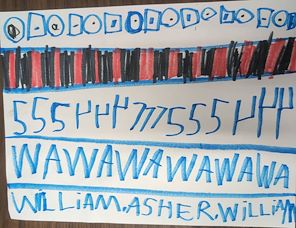 555444777555444
WAWAWAWAWAWA
WILLIAM.ASHER.WILLIAM